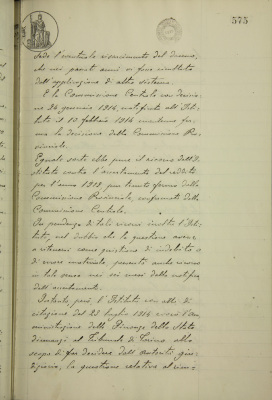 575
sede l'eventuale risarcimento del danno,
che nei passati anni si fosse risultato
dall'applicazione di altro sistema.
E la Commissione Centrale con decisio-
ne 26 gennaio 1914 notificata all'Isti-
tuto il 10 febbraio 1914 confermo fer-
ma la decisione della Commissione Pro-
vinciale.
Eguale sorte ebbe pure il ricorso dell'I-
stituto contro l'accertamento del reddito
per l'anno 1913 pur tenuto fermo dalla
Commissione Provinciale, confermata dalla
Commissione Centrale.
In pendenza di tali ricorsi
l'Isti-
tuto, nel dubbio che la questione avesse
a ritenersi come questione di indebito o
di mora
, presentò anche ricorso
in tale senso nei sei mesi dalla notifica
dell'accertamento.
Pertanto però, l'Istituto con atto di
citazione del 23 luglio 1914 l'Am-
ministrazione delle Finanze dello Stato
dinnanzi al Tribunale di Torino allo
scopo di far decidere dall'Autorità giu-
diziaria, la questione relativa al rim-